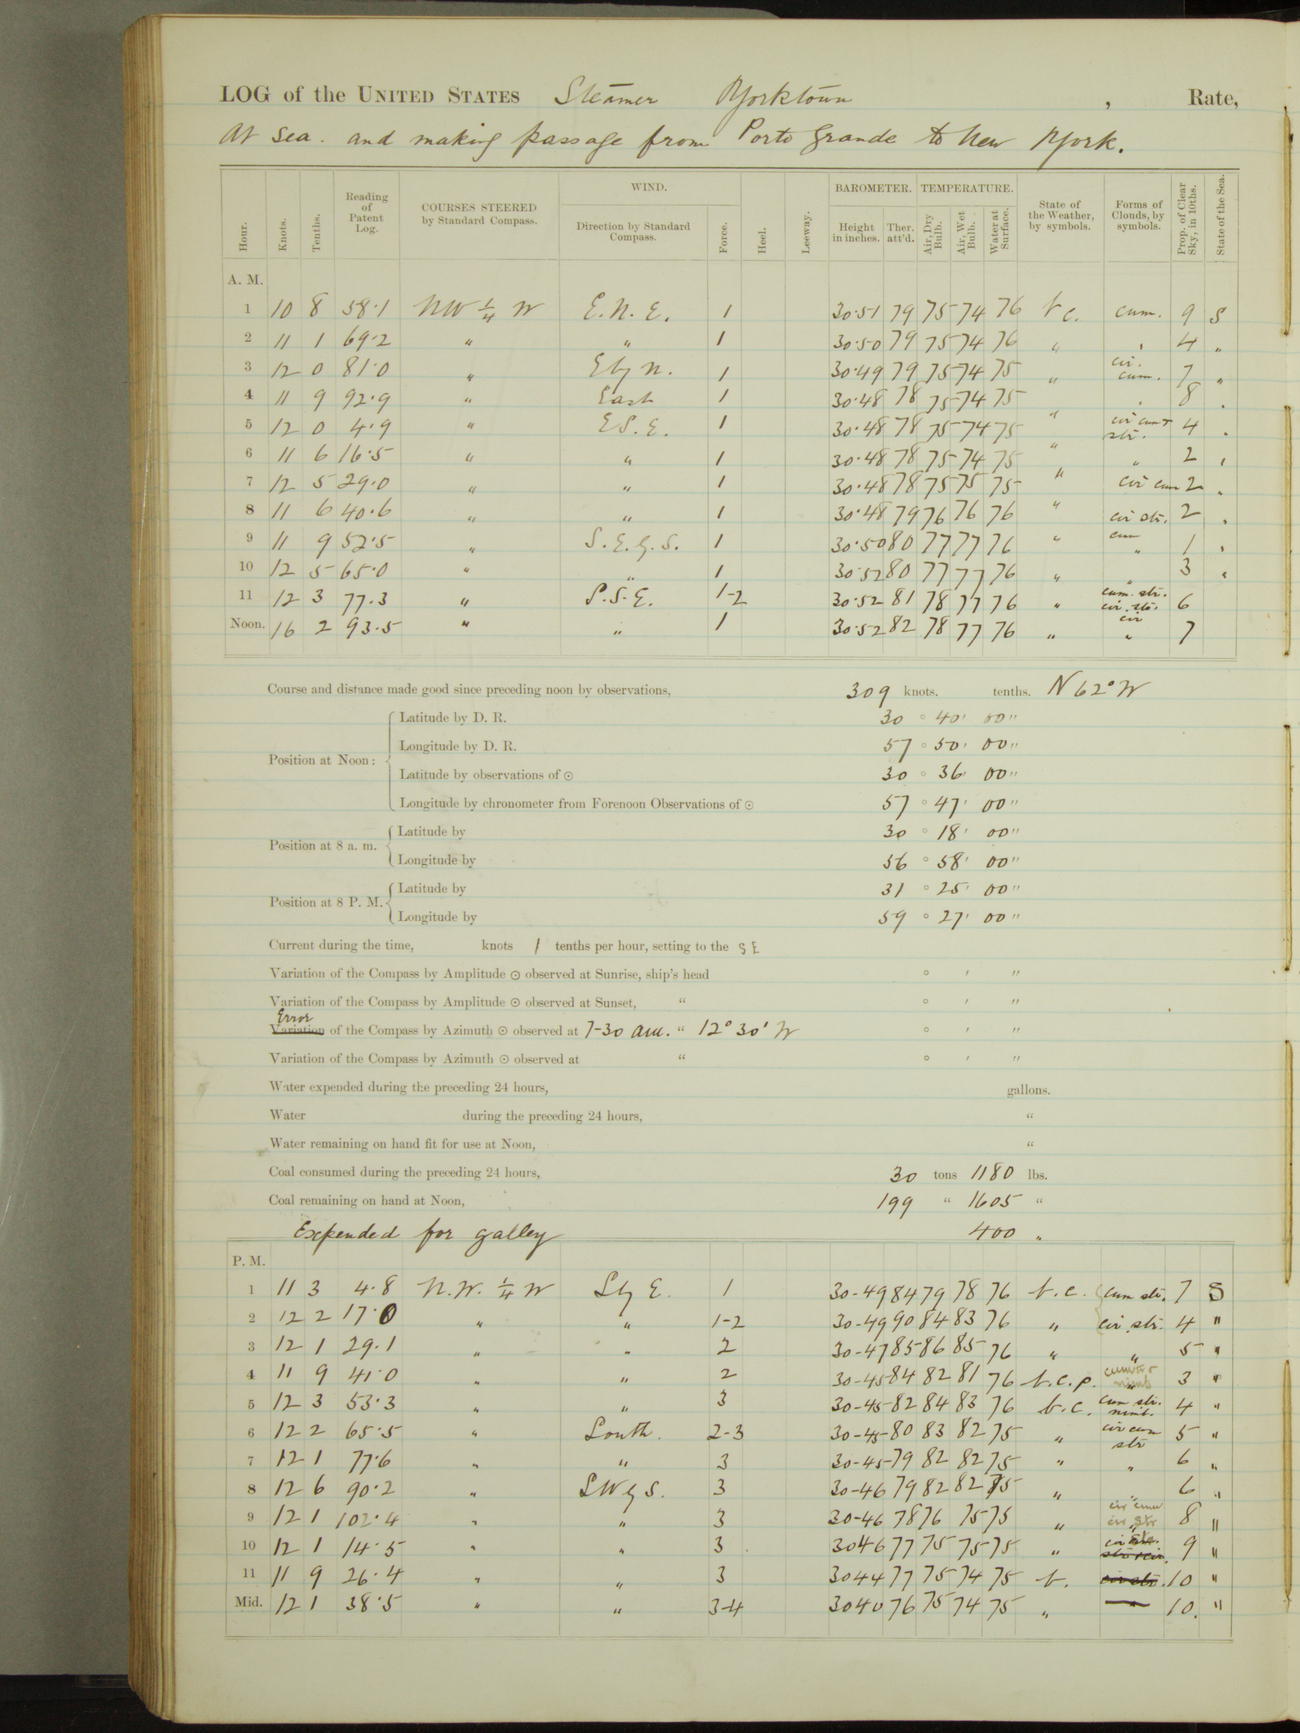 LOG of the UNITED STATES Steamer Yorktown , Rate,
At Sea. and making passage from Porto Grande to New York.
Hour. Knots. Tenths. Reading of Patent Log. COURSES STEERED by Standard Compass. WIND. Direction by Standard Compass. Force. Heel. Leeway. BAROMETER. Height in inches. Ther. att'd. TEMPERATURE. Air, Dry Bulb. Air, Wet Bulb. Water at Surface. State of the Weather, by symbols. Forms of Clouds, by symbols. Prop. of Clear Sky, in 10ths. State of the Sea.
A. M.
1 10 8 58.1 NW ¼ W E.N.E. 1 30.51 79 75 74 76 b c. cum. 9 S
2 11 1 69.2 " " 1 30.50 79 75 74 76 " " 4 "
3 12 0 81.0 " E by N. 1 30.49 79 75 74 75 " cir. cum. 7 "
4 11 9 92.9 " East 1 30.48 78 75 74 75 " " 8 "
5 12 0 4.9 " E S. E. 1 30.48 78 75 74 75 " cir cum str. 4 "
6 11 6 16.5 " " 1 30.48 78 75 74 75 " " 2 "
7 12 5 29.0 " " 1 30.48 78 75 75 75 " cir cum 2 "
8 11 6 40.6 " " 1 30.48 79 76 76 76 " cir str. 2 "
9 11 9 52.5 " S. E. y. S. 1 30.50 80 77 77 76 " cum " 1 "
10 12 5 65.0 " " 1 30.52 80 77 77 76 " " 3 "
11 12 3 77.3 " S.S.E. 1-2 30.52 81 78 77 76 " cum. str. cir. str. 6
Noon. 16 2 93.5 " " 1 30.52 82 78 77 76 " cir " 7
Course and distance made good since preceding noon by observations, 309 knots. tenths. N 62° W
Position at Noon: Latitude by D. R. 30 ° 40' 00"
Longitude by D. R. 57 ° 50' 00"
Latitude by observations of ☉ 30 ° 36' 00"
Longitude by chronometer from Forenoon Observations of ☉ 57 ° 47' 00"
Position at 8 a. m. Latitude by 30 ° 18' 00"
Longitude by 56 ° 58' 00"
Position at 8 P. M. Latitude by 31 ° 25' 00"
Longitude by 59 ° 27' 00"
Current during the time, knots 1 tenths per hour, setting to the S E
Variation of the Compass by Amplitude ☉ observed at Sunrise, ship's head ° ' "
Variation of the Compass by Amplitude ☉ observed at Sunset, " ° ' "
Error
Variation of the Compass by Azimuth ☉ observed at 7-30 am. " 12° 30' W ° ' "
Variation of the Compass by Azimuth ☉ observed at " ° ' "
Water expended during the preceding 24 hours, gallons.
Water during the preceding 24 hours, "
Water remaining on hand fit for use at Noon, "
Coal consumed during the preceding 24 hours, 30 tons 1180 lbs.
Coal remaining on hand at Noon, 199 " 1605 "
Expended for galley 400 "
P. M.
1 11 3 4.8 N.W. ¼ W S by E. 1 30-49 84 79 78 76 b.c. cum str. 7 S
2 12 2 17.0 " " 1-2 30-49 90 84 83 76 " cir. str. 4 "
3 12 1 29.1 " " 2 30-47 85 86 85 76 " " 5 "
4 11 9 41.0 " " 2 30-45 84 82 81 76 b.c.p. 3 "
5 12 3 53.3 " " 3 30-45 82 84 83 76 b.c. cum str. nimb. 4 "
6 12 2 65.5 " South. 2-3 30-45 80 83 82 75 " cir cum str 5 "
7 12 1 77.6 " " 3 30-45 79 82 82 75 " " 6 "
8 12 6 90.2 " S W y S. 3 30-46 79 82 82 75 " " 6 "
9 12 1 102.4 " " 3 30-46 78 76 75 75 " cir cum cir str 8 "
10 12 1 14.5 " " 3 3046 77 75 75 75 " cir str. 9 "
11 11 9 26.4 " " 3 3044 77 75 74 75 b. cir str. 10 "
Mid. 12 1 38.5 " " 3-4 3040 76 75 74 75 " 10. "